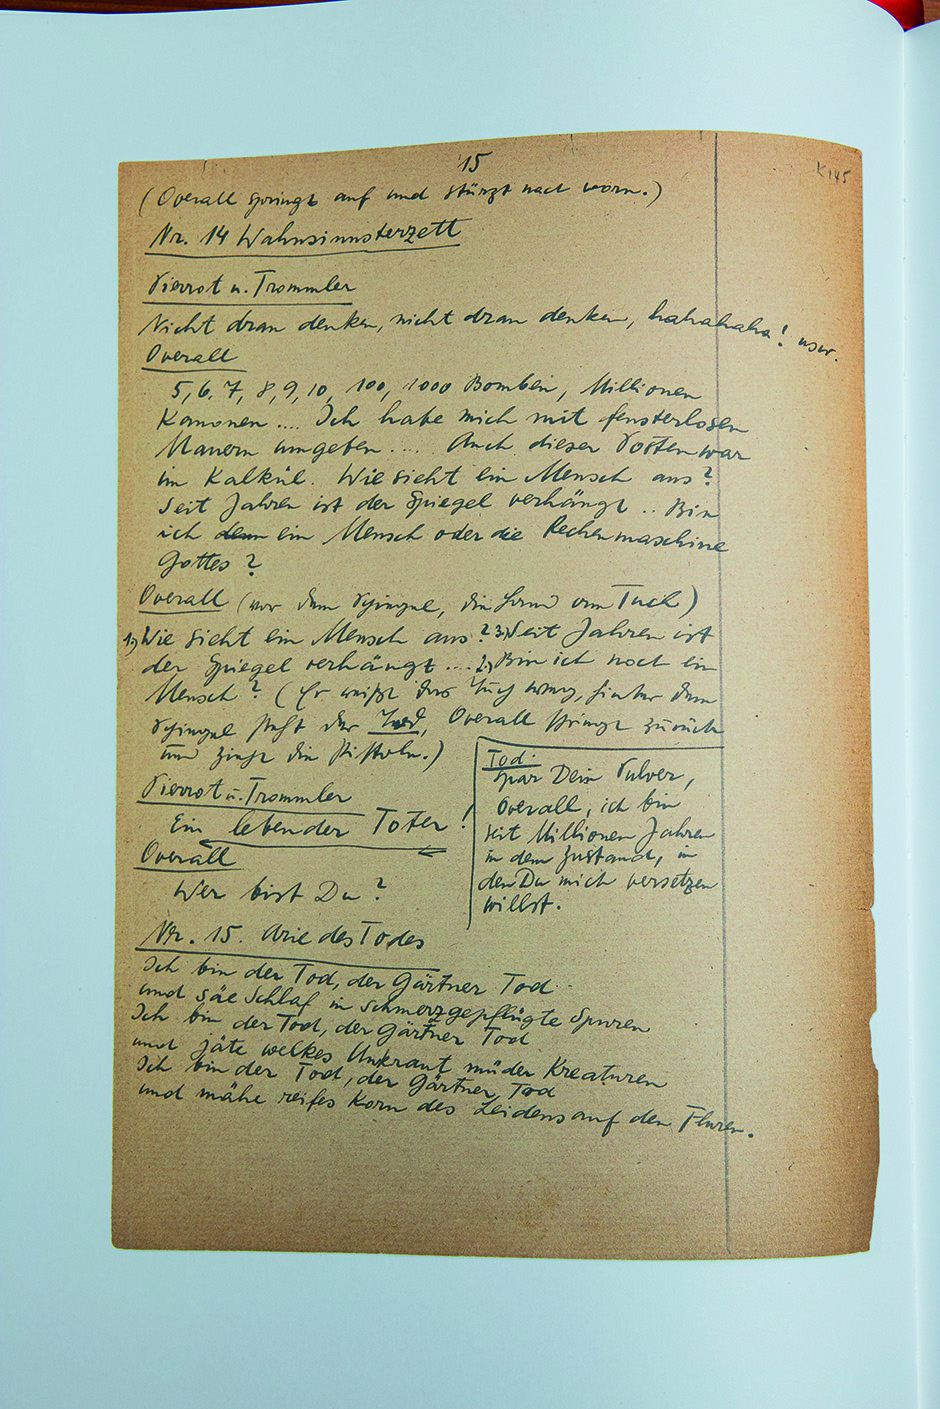 15
K 145
(Overall springt auf und stürzt nach vorn.)
Nr. 14 Wahnsinnsterzett
Pierrot u. Trommler
Nicht dran denken, nicht dran denken, hahahaha! usw.
Overall
5, 6, 7, 8, 9, 10, 100, 1000 Bomben, Millionen
Kanonen .... Ich habe mich mit fensterlosen
Mauern umgeben .... Auch dieser Posten war
im Kalkül. Wie sieht ein Mensch aus?
Seit Jahren ist der Spiegel verhängt .. Bin
ich denn ein Mensch oder die Rechenmaschine
Gottes?
Overall (vor dem Spiegel, die Hand am Tuch)
1.) Wie sieht ein Mensch aus? 3.) Seit Jahren ist
der Spiegel verhängt .... 2.) Bin ich noch ein
Mensch? (Er reißt das Tuch weg, hinter dem
Spiegel steht der Tod, Overall springt zurück
und zieht die Pistole.)
Pierrot u. Trommler
Ein lebender Toter!
Overall
Wer bist Du?
Tod:
Spar Dein Pulver,
Overall, ich bin
seit Millionen Jahren
in dem Zustand, in
den Du mich versetzen
willst.
Nr. 15. Arie des Todes
Ich bin der Tod, der Gärtner Tod
und säe Schlaf in schmerzgepflügte Spuren
Ich bin der Tod, der Gärtner Tod
und jäte welkes Unkraut müder Kreaturen
Ich bin der Tod, der Gärtner Tod
und mähe reifes Korn des Leidens auf den Fluren.